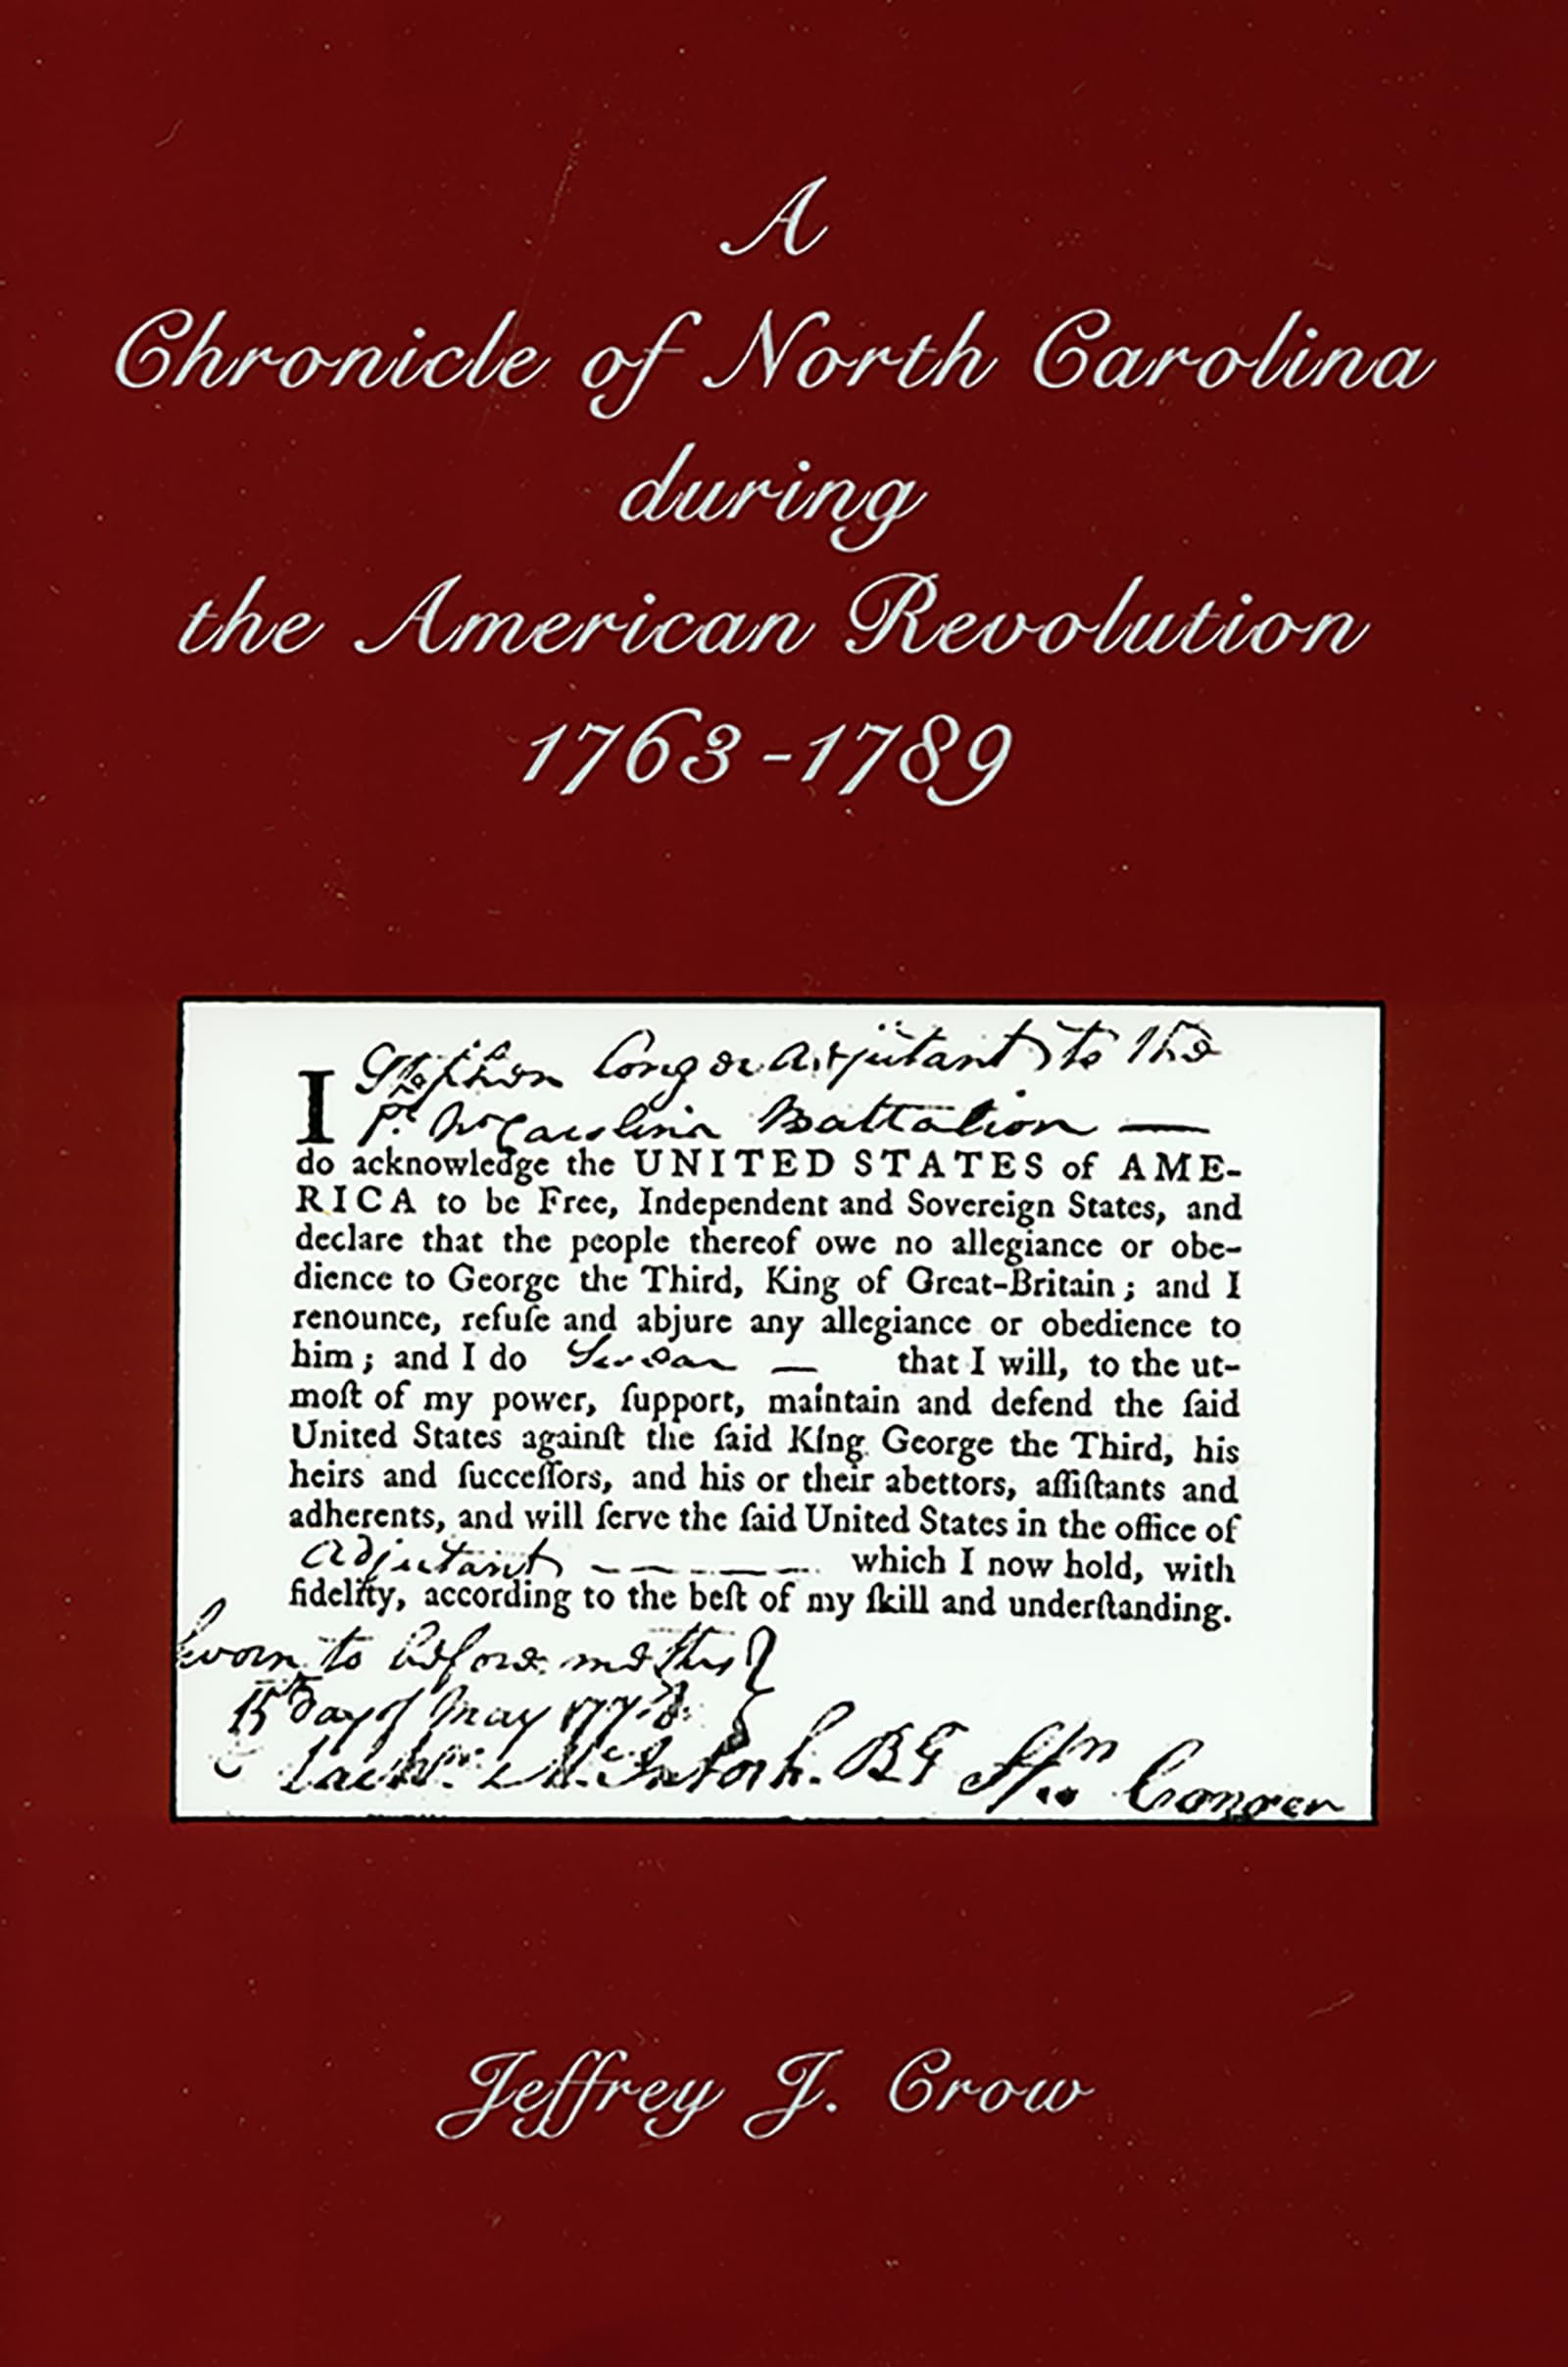 A
Chronicle of North Carolina
during
the American Revolution
1763-1789
I Stephen Conger Adjutant to the
Battalion —
do acknowledge the UNITED STATES of AME-
RICA to be Free, Independent and Sovereign States, and
declare that the people thereof owe no allegiance or obe-
dience to George the Third, King of Great-Britain; and I
renounce, refuſe and abjure any allegiance or obedience to
him; and I do Swear — that I will, to the ut-
moſt of my power, ſupport, maintain and defend the ſaid
United States againſt the ſaid King George the Third, his
heirs and ſucceſſors, and his or their abettors, aſſiſtants and
adherents, and will ſerve the ſaid United States in the office of
Adjutant — — — — which I now hold, with
fidelity, according to the beſt of my ſkill and underſtanding.
Sworn to before me this
15th Day of May 1778
Lachn. McIntosh. BG Stn Conger
Jeffrey J. Crow